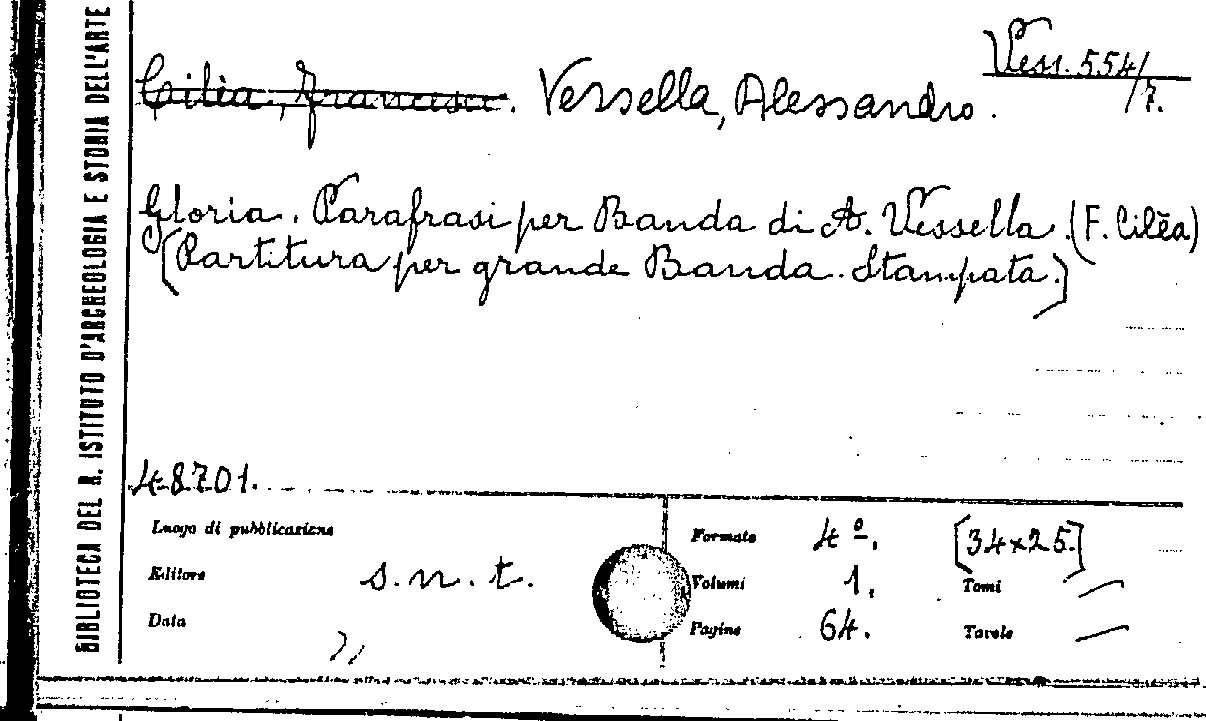 BIBLIOTECA DEL R. ISTITUTO D'ARCHEOLOGIA E STORIA DELL'ARTE
Vess. 554/7.
Cilia, Francesco. Vessella, Alessandro.
Gloria. Parafrasi per Banda di A. Vessella. (F. Cilèa)
(Partitura per grande Banda. Stampata.)
48701.
Luogo di pubblicazione
Editore s.n.t.
Data "
Formato 4º. [34×25.]
Volumi 1. Tomi —
Pagine 64. Tavole —